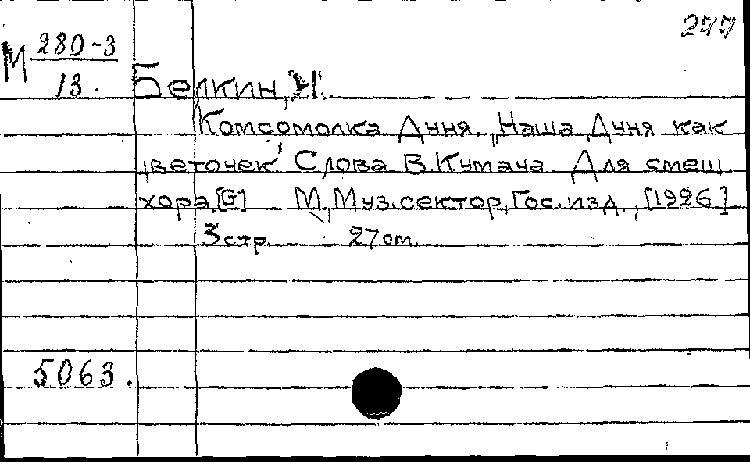 277
М 280-3
13.
Белкин, И.
Комсомолка Дуня. „Наша Дуня как
цветочек" Слова В. Кумача. Для смеш.
хора [G] М., Муз. сектор, Гос. изд., [1926]
3 стр. 27 cm.
5063.